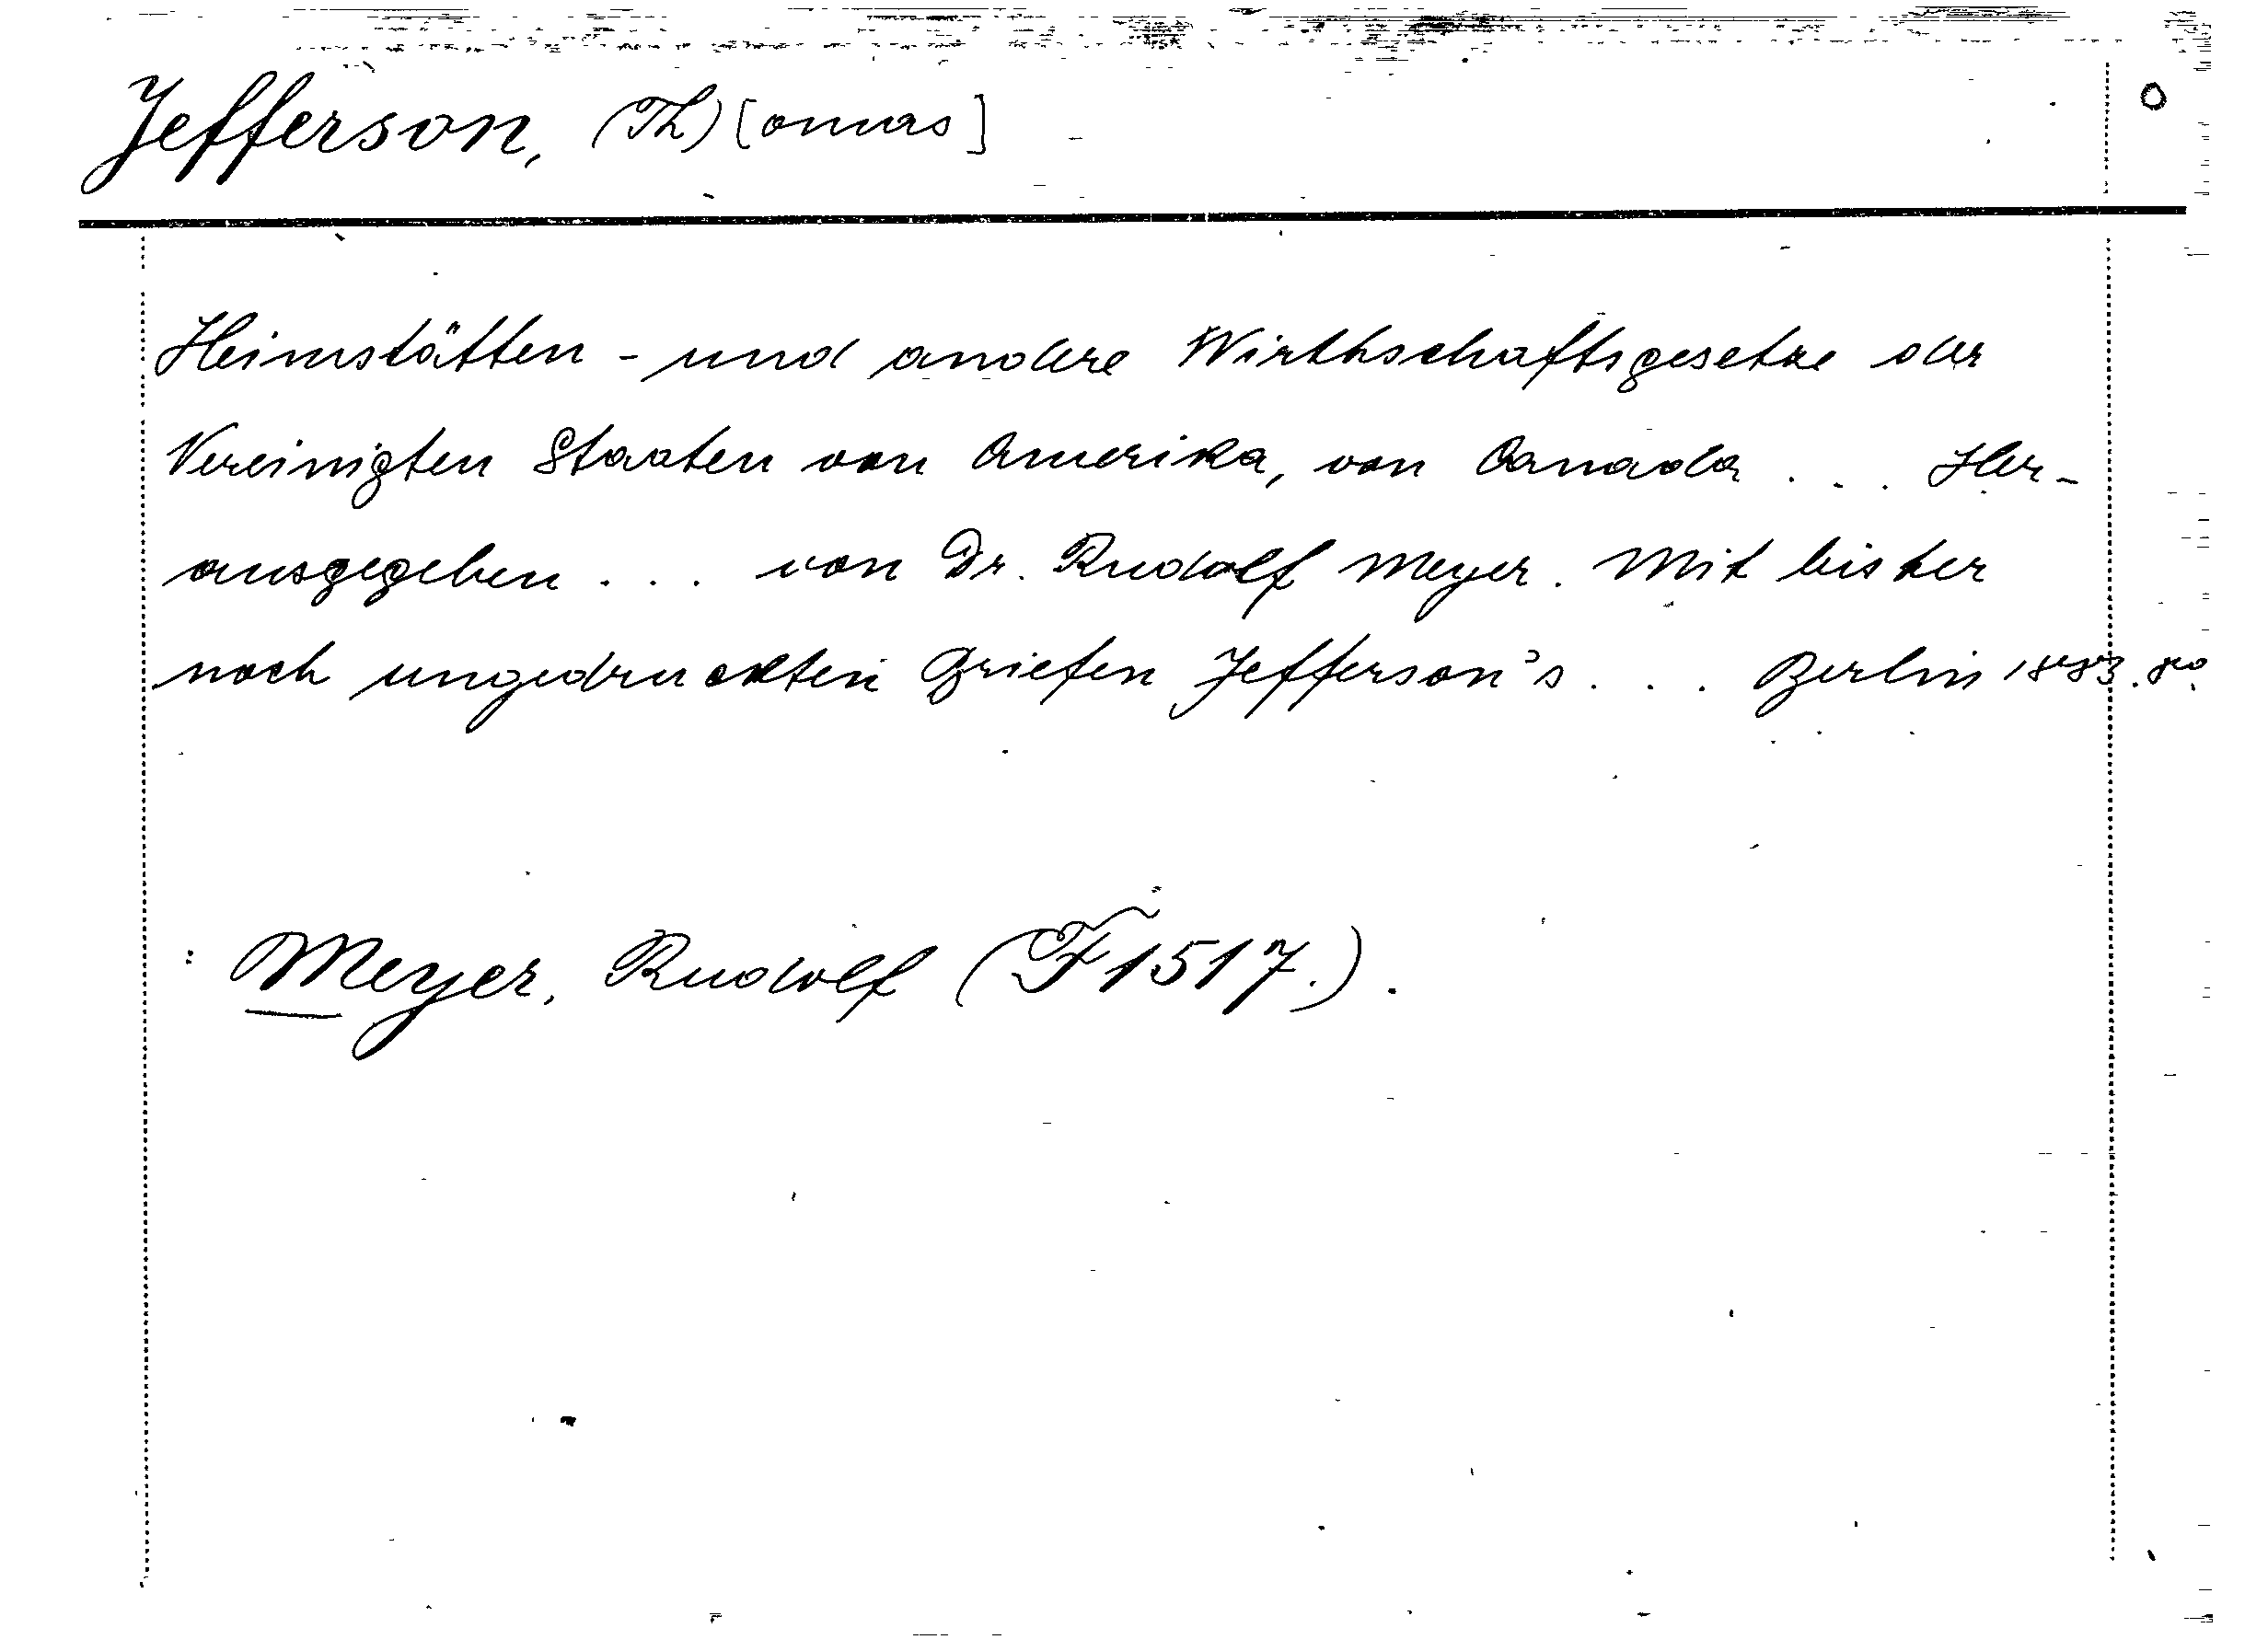 Jefferson, (Th)[omas] O
Heimstätten - und andere Wirthschaftsgesetze der
Vereinigten Staaten von Amerika, von Canada . . . Her-
ausgegeben . . . von Dr. Rudolf Meyer. Mit bisher
noch ungedruckten Briefen Jefferson's . . . Berlin 1883. 8o.
: Meyer, Rudolf (F 1517.).